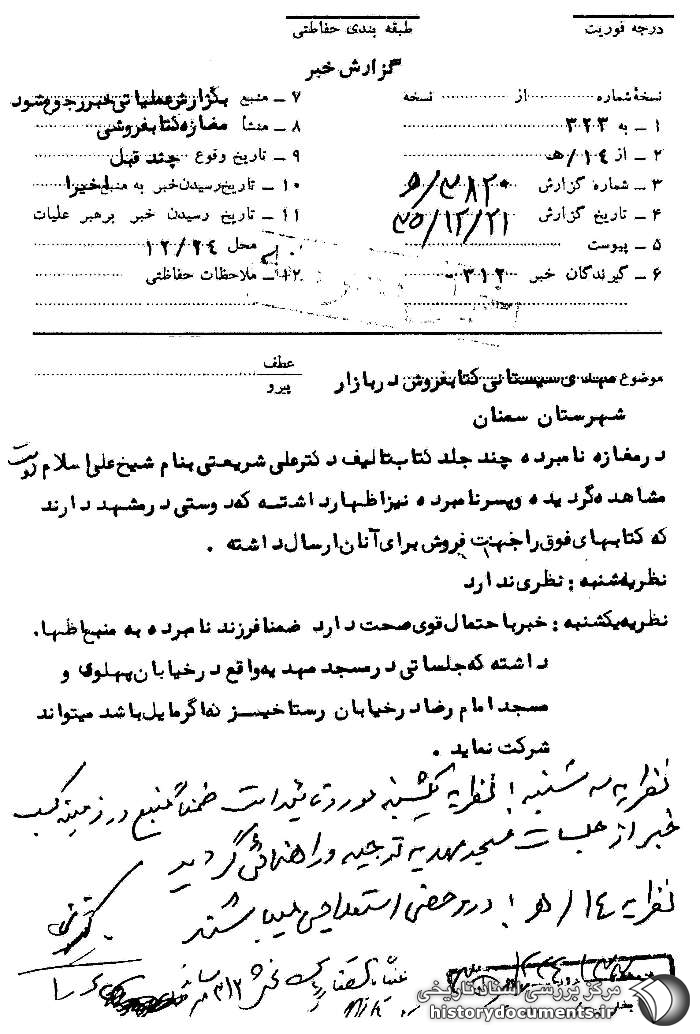 درجه فوریت
طبقه بندی حفاظتی
گزارش خبر
نسخهٔ شماره از نسخه
۱ ـ به ۳۲۳
۲ ـ از ۱۴/هـ
۳ ـ شماره گزارش ۳۸۲۰/ه
۴ ـ تاریخ گزارش ۳۵/۱۲/۲۱
۵ ـ پیوست
۶ ـ گیرندگان خبر ۳۱۲ -
۷ ـ منبع بگزارش عملیاتی خبر رجوع شود
۸ ـ منشأ مغازه کتابفروشی
۹ ـ تاریخ وقوع چند قبل
۱۰ ـ تاریخ رسیدن خبر به منبع اخیرا
۱۱ ـ تاریخ رسیدن خبر برهبر عملیات
محل ۱۲/۲۴
۱۲ ـ ملاحظات حفاظتی
موضوع مهدی سیستانی کتابفروش در بازار
عطف
پیرو
شهرستان سمنان
در مغازه نامبرده چند جلد کتاب تالیف دکتر علی شریعتی بنام شیخ علی اسلام
مشاهده گردیده و پسر نامبرده نیز اظهار داشته که دوستی در مشهد دارند
که کتابهای فوق را جهت فروش برای آنان ارسال داشته .
نظریه شنبه : نظری ندارد
نظریه یکشنبه : خبر با احتمال قوی صحت دارد ضمنا فرزند نامبرده به منبع اظها.
داشته که جلساتی در مسجد مهدیه واقع در خیابان پهلوی و
مسجد امام رضا در خیابان رستاخیز که اگر مایل باشد میتواند
شرکت نماید .
نظریه سه شنبه : نظریه یکشنبه مورد تائید است ضمناً منبع در زمینه کسب
خبر از جلسات مسجد مهدیه توجیه و راهنمائی گردید
نظریه ۱۴/هـ : در مرخصی استعلاجی میباشند
بخش ۳۱۲
مرکز بررسی اسناد تاریخی
historydocuments.ir